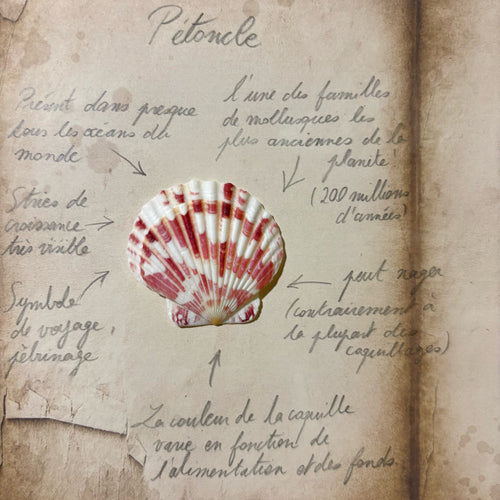 Pétoncle
Présent dans presque
tous les océans du
monde
l'une des familles
de mollusques les
plus anciennes de la
planète!
(200 millions
d'années)
Stries de
croissance
très visible
Symbole
de voyage,
pèlrinage
peut nager
(contrairement à
la plupart des
coquillages)
La couleur de la coquille
varie en fonction de
l'alimentation et des fonds.